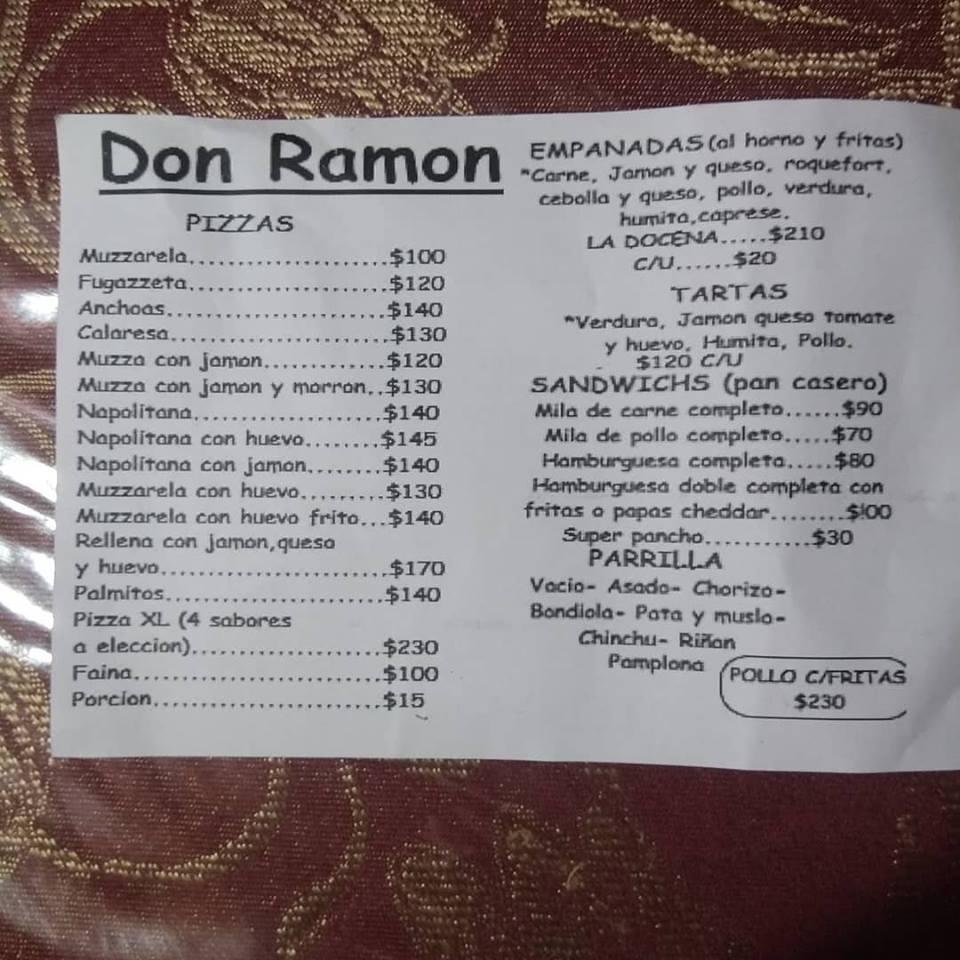 Don Ramon
PIZZAS
Muzzarela......................$100
Fugazzeta.......................$120
Anchoas.........................$140
Calaresa.........................$130
Muzza con jamon..............$120
Muzza con jamon y morron..$130
Napolitana......................$140
Napolitana con huevo........$145
Napolitana con jamon........$140
Muzzarela con huevo.........$130
Muzzarela con huevo frito...$140
Rellena con jamon,queso
y huevo..........................$170
Palmitos.........................$140
Pizza XL (4 sabores
a eleccion)......................$230
Faina.............................$100
Porcion..........................$15
EMPANADAS (al horno y fritas)
*Carne, Jamon y queso, roquefort,
cebolla y queso, pollo, verdura,
humita,caprese.
LA DOCENA.....$210
C/U......$20
TARTAS
*Verdura, Jamon queso tomate
y huevo, Humita, Pollo.
$120 C/U
SANDWICHS (pan casero)
Mila de carne completo......$90
Mila de pollo completo.....$70
Hamburguesa completa.....$80
Hamburguesa doble completa con
fritas o papas cheddar........$100
Super pancho...........$30
PARRILLA
Vacio- Asado- Chorizo-
Bondiola- Pata y muslo-
Chinchu- Riñon
Pamplona
POLLO C/FRITAS
$230